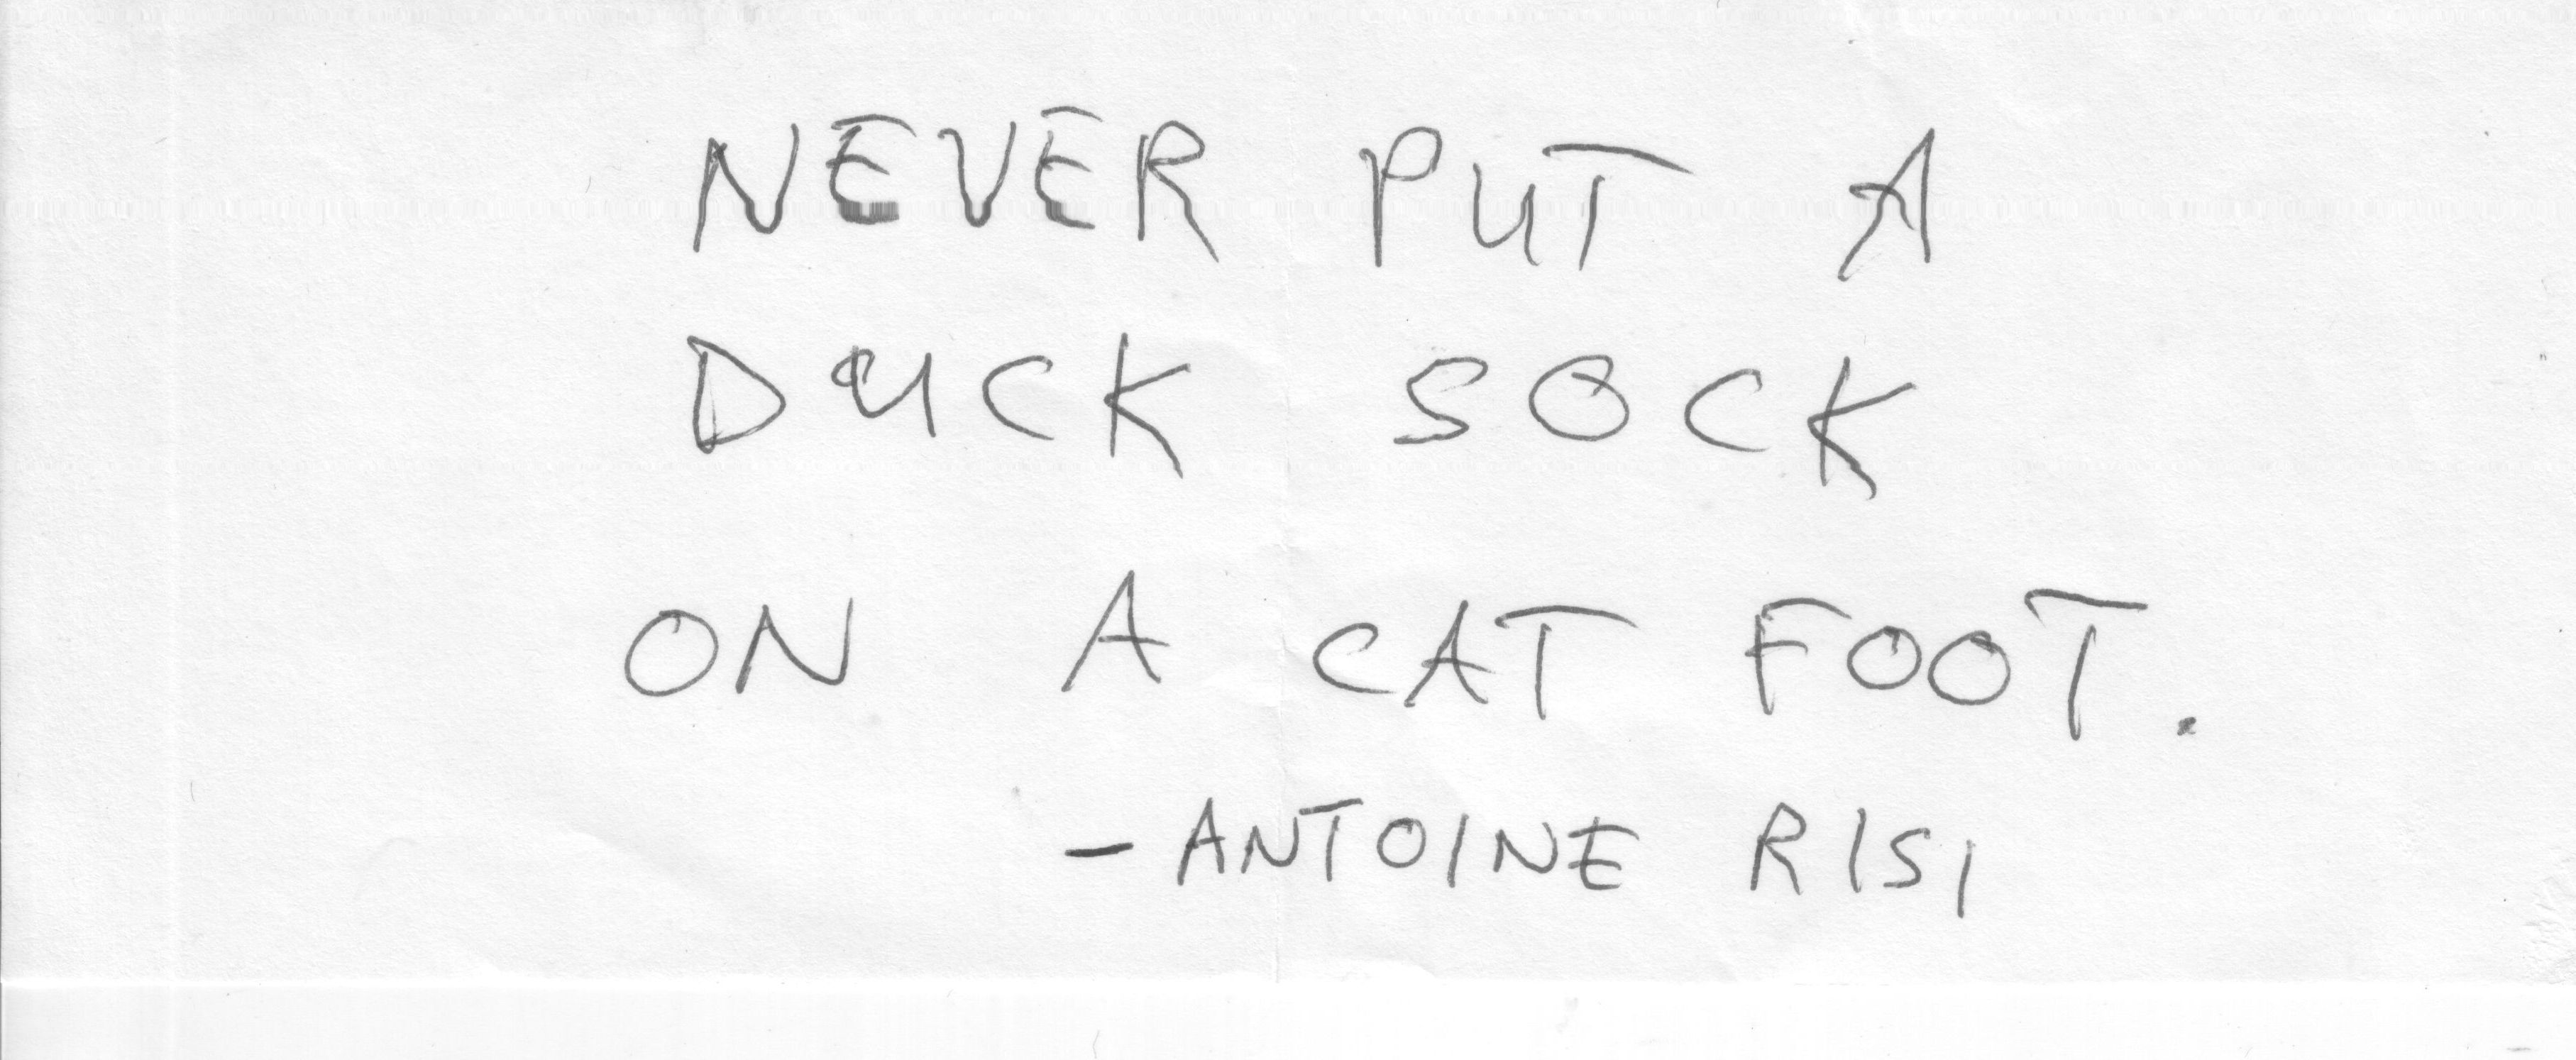 NEVER PUT A
DUCK SOCK
ON A CAT FOOT.
- ANTOINE RISI